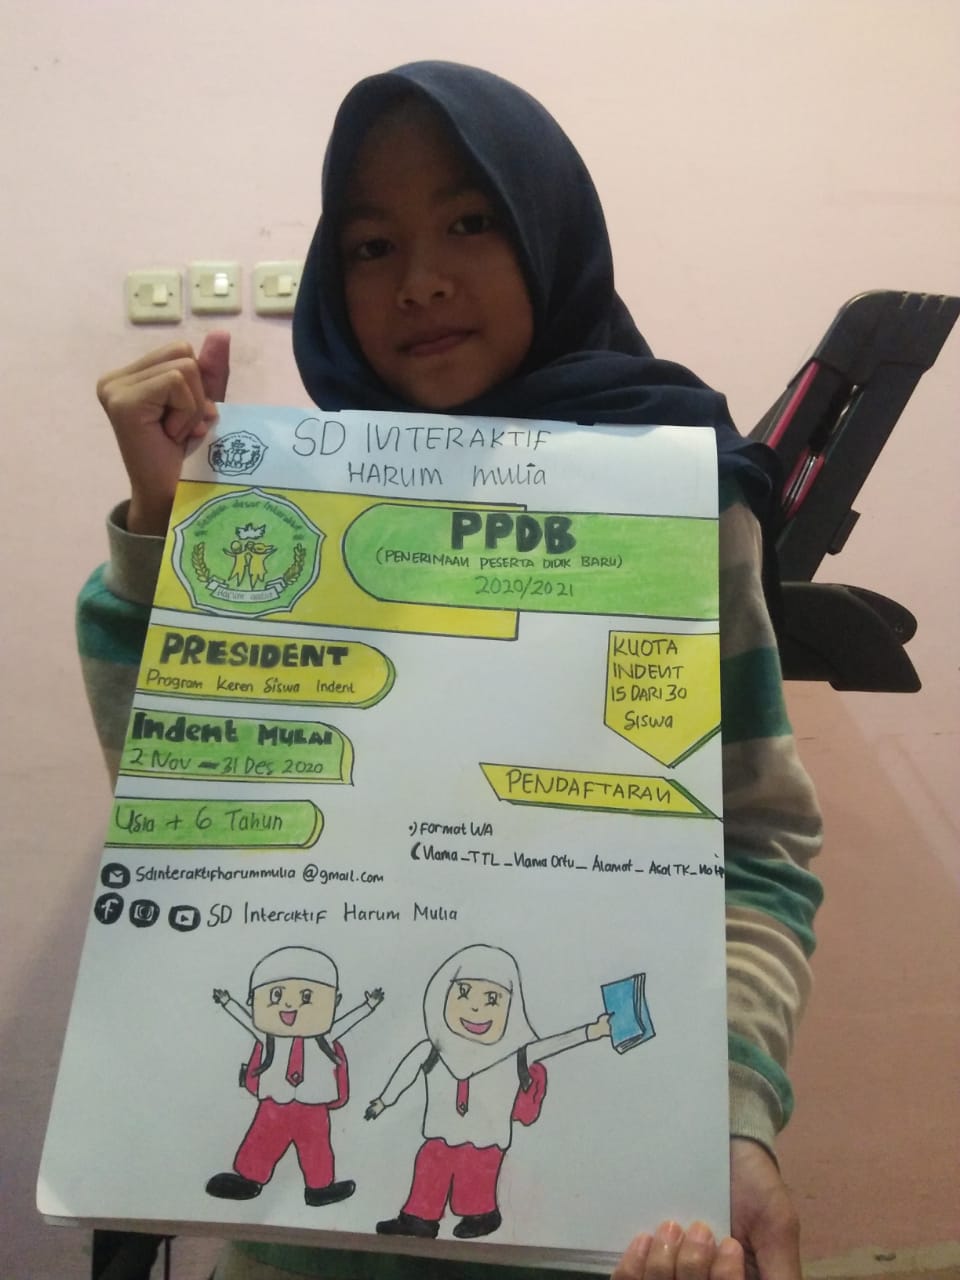 SD INTERAKTIF
HARUM MULIA
Sekolah dasar Interaktif
Harum Mulia
PPDB
(PENERIMAAN PESERTA DIDIK BARU)
2020/2021
PRESIDENT
Program Keren Siswa Indent
KUOTA
INDENT
15 DARI 30
Siswa
Indent MULAI
2 Nov - 31 Des 2020
PENDAFTARAN
Usia + 6 Tahun
•) Format WA
(Nama_TTL_Nama Ortu_ Alamat_ Asal TK_No Hp
Sdinteraktifharummulia @gmail.com
SD Interaktif Harum Mulia